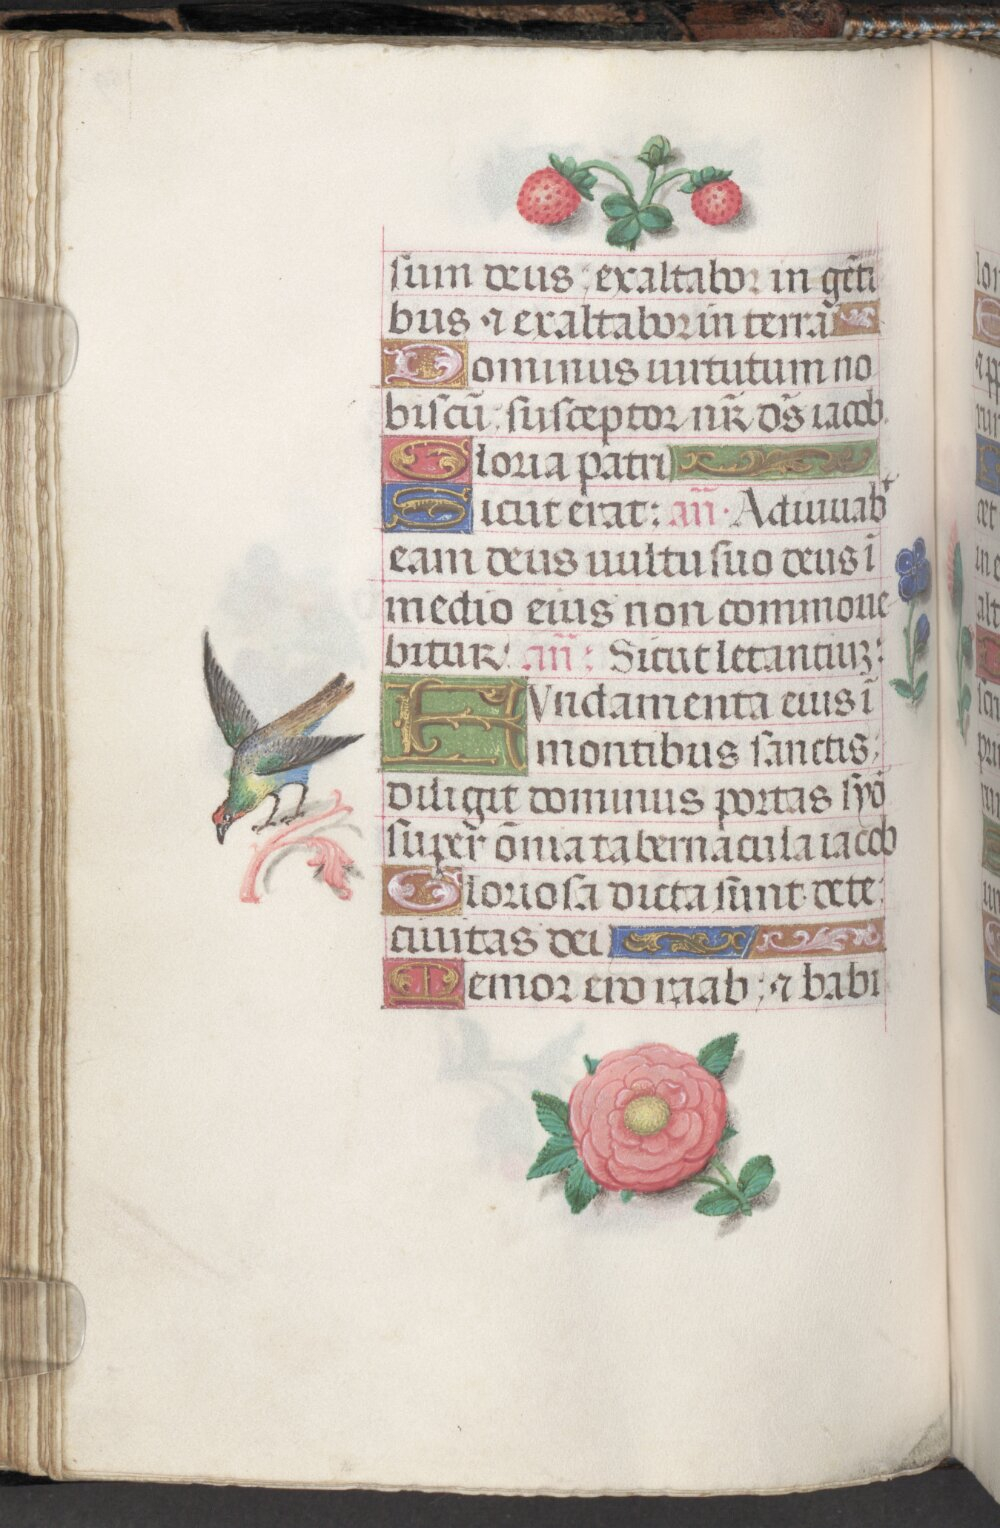 sum deus : exaltabor in gēti
bus ⁊ exaltabor in terrā
Dominus uirtutum no
biscū : susceptor nr̄ dn̄s iacob.
Gloria patri
Sicut erat : an̄ · Adiuuabᵗ
eam deus uultu suo deus ī
medio eius non commoue
bitur. an̄ : Sicut letantiuʒ :
FVndamenta eius ī
montibus sanctis :
diligit dominus portas syō
super ōmia tabernacula iacob
Gloriosa dicta sunt de te :
ciuitas dei
Memor ero raab : ⁊ babi